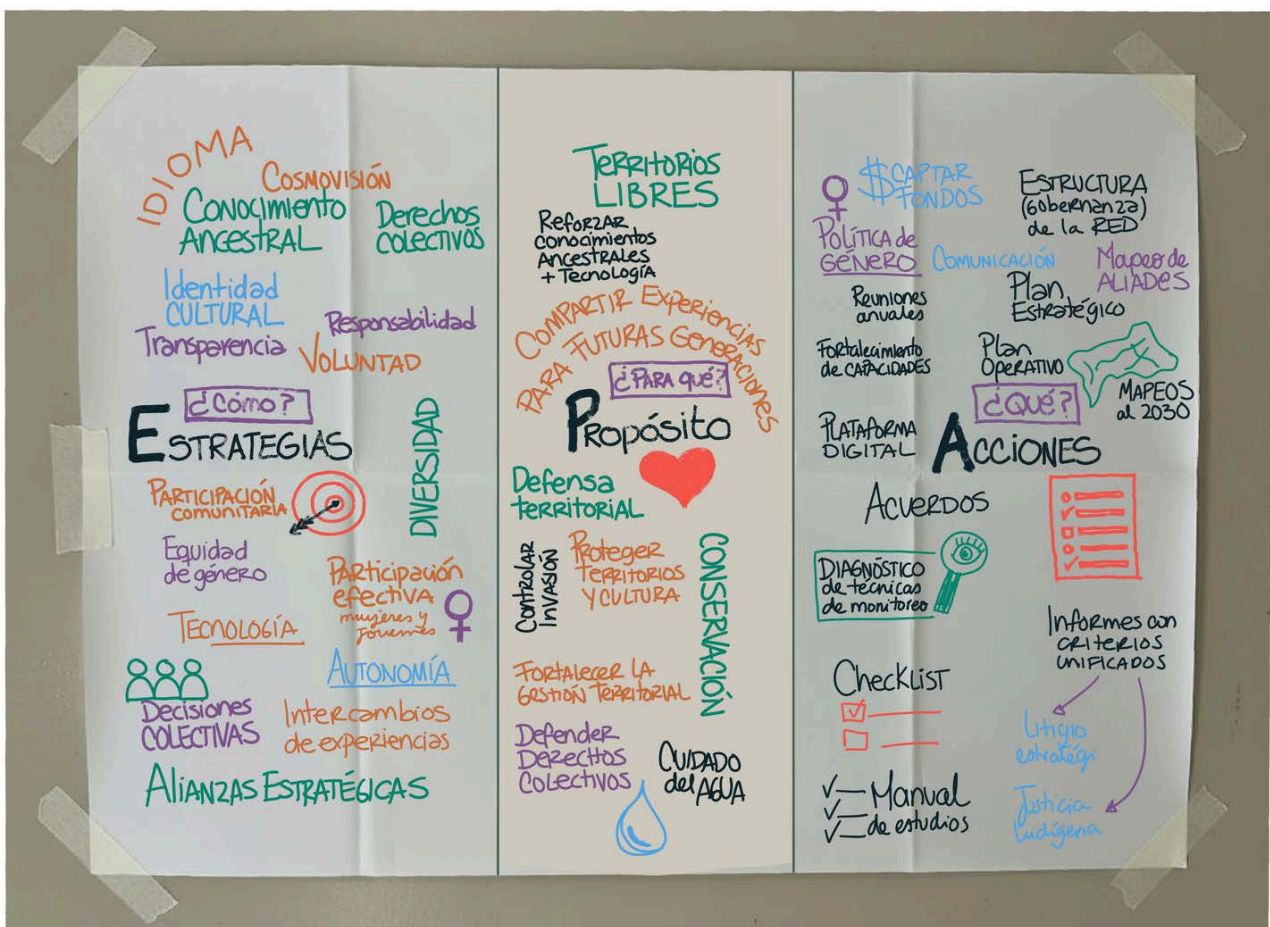 IDIOMA
COSMOVISIÓN
CONOCIMIENTO
ANCESTRAL
DERECHOS
COLECTIVOS
Identidad
CULTURAL
Transparencia
Responsabilidad
VOLUNTAD
¿CÓMO?
ESTRATEGIAS
DIVERSIDAD
PARTICIPACIÓN
comunitaria
Equidad
de género
PARTICIPACIÓN
efectiva
mujeres y
jóvenes
TECNOLOGÍA
AUTONOMÍA
Decisiones
COLECTIVAS
Intercambios
de experiencias
ALIANZAS ESTRATÉGICAS
TERRITORIOS
LIBRES
REFORZAR
conocimientos
ANCESTRALES
+ TECNOLOGÍA
COMPARTIR Experiencias
PARA FUTURAS GENERACIONES
¿PARA QUÉ?
PROPÓSITO
Defensa
TERRITORIAL
CONTROLAR
INVASIÓN
Proteger
TERRITORIOS
Y CULTURA
CONSERVACIÓN
FORTALECER LA
GESTIÓN TERRITORIAL
Defender
DERECHOS
COLECTIVOS
CUIDADO
del AGUA
$ CAPTAR
FONDOS
ESTRUCTURA
(GOBERNANZA)
de la RED
POLÍTICA de
GÉNERO
COMUNICACIÓN
Mapeo de
ALIADES
Reuniones
anuales
Plan
ESTRATÉGICO
FORTALECIMIENTO
de CAPACIDADES
Plan
OPERATIVO
MAPEOS
al 2030
¿QUÉ?
PLATAFORMA
DIGITAL
ACCIONES
ACUERDOS
DIAGNÓSTICO
de técnicas
de monitoreo
Informes con
CRITERIOS
UNIFICADOS
CheckLIST
Litigio
estratégi
Justicia
Indígena
Manual
de estudios